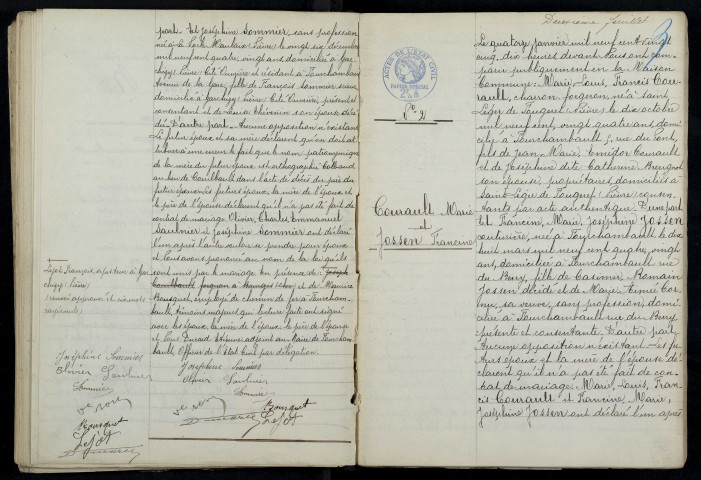 part. Et Joséphine Sommier, sans profession
née à La Roche Maulaix (Nièvre) le vingt six décembre
mil neuf cent quatre vingt ans domiciliée à Gar
chizy (Nièvre) Cité Ouvrière et résidant à Fourchambault
Avenue de la Gare, fille de François Sommier
domicilié à Garchizy (Nièvre) Cité Ouvrière, présent et
consentant et de Louise Thévenin son épouse
D'autre part. Aucune opposition n'existant
Le futur époux et sa mère déclarent qu'on doit at
tribuer à une erreur le fait que le nom patronymique
de la mère du futur époux est orthographié
au lieu de dans l'acte de décès du père du
futur époux. Les futurs époux, la mère de l'époux et
le père de l'épouse déclarent qu'il n'a pas été fait de
contrat de mariage. Olivier, Charles, Emmanuel
Saulnier et Joséphine Sommier ont déclaré
l'un après l'autre vouloir se prendre pour époux
et Nous avons prononcé au nom de la loi qu'ils
sont unis par le mariage. En présence de Joseph
forgeron à et de Maurice
Bousquet, employé de chemin de fer à Fourcham
bault, témoins majeurs qui lecture faite ont signé
avec les époux, la mère de l'époux, le père de l'épouse
et Nous Etienne adjoint au Maire de Fourcham
bault Officier de l'Etat Civil par délégation.
Joséphine Sommier
Olivier Saulnier
Sommier
Bousquet
Lejot
Lejot François
chizy (Nièvre)
(renvoi approuvé et six mots
rayés nuls)
Joséphine Sommier
Olivier Saulnier
Sommier
Bousquet
Lejot
ACTES DE L'ETAT CIVIL
PAPIER SPECIAL
N° 2
Courault Marie
et
Jossen Francine
Deuxième feuillet
Le quatorze janvier mil neuf cent vingt
cinq, dix heures devant Nous ont com
paru publiquement en la Maison
Commune: Marie, Louis, Francis Cou
rault, charron forgeron, né à Saint
Léger de Fougeret (Nièvre) le dix octobre
mil neuf cent, vingt quatre ans, domi
cilié à Fourchambault, rue du Pont,
fils de Jean-Marie, Courault
et de Joséphine dite Catherine
son épouse, propriétaires domiciliés à
Saint Léger de Fougeret (Nièvre) consen
tants par acte authentique. D'une part
Et Francine, Marie, Joséphine Jossen
couturière, née à Fourchambault le dix
huit mars mil neuf cent quatre, vingt
ans, domiciliée à Fourchambault rue
du Berry, fille de Casimir, Romain
Jossen décédé et de Marie, Aimée
sa veuve, sans profession, domici
liée à Fourchambault rue du Berry
présente et consentante. D'autre part,
Aucune opposition n'existant. Les fu
turs époux et la mère de l'épouse dé
clarent qu'il n'a pas été fait de con
trat de mariage. Marie, Louis, Fran
cis Courault et Francine, Marie,
Joséphine Jossen ont déclaré l'un après